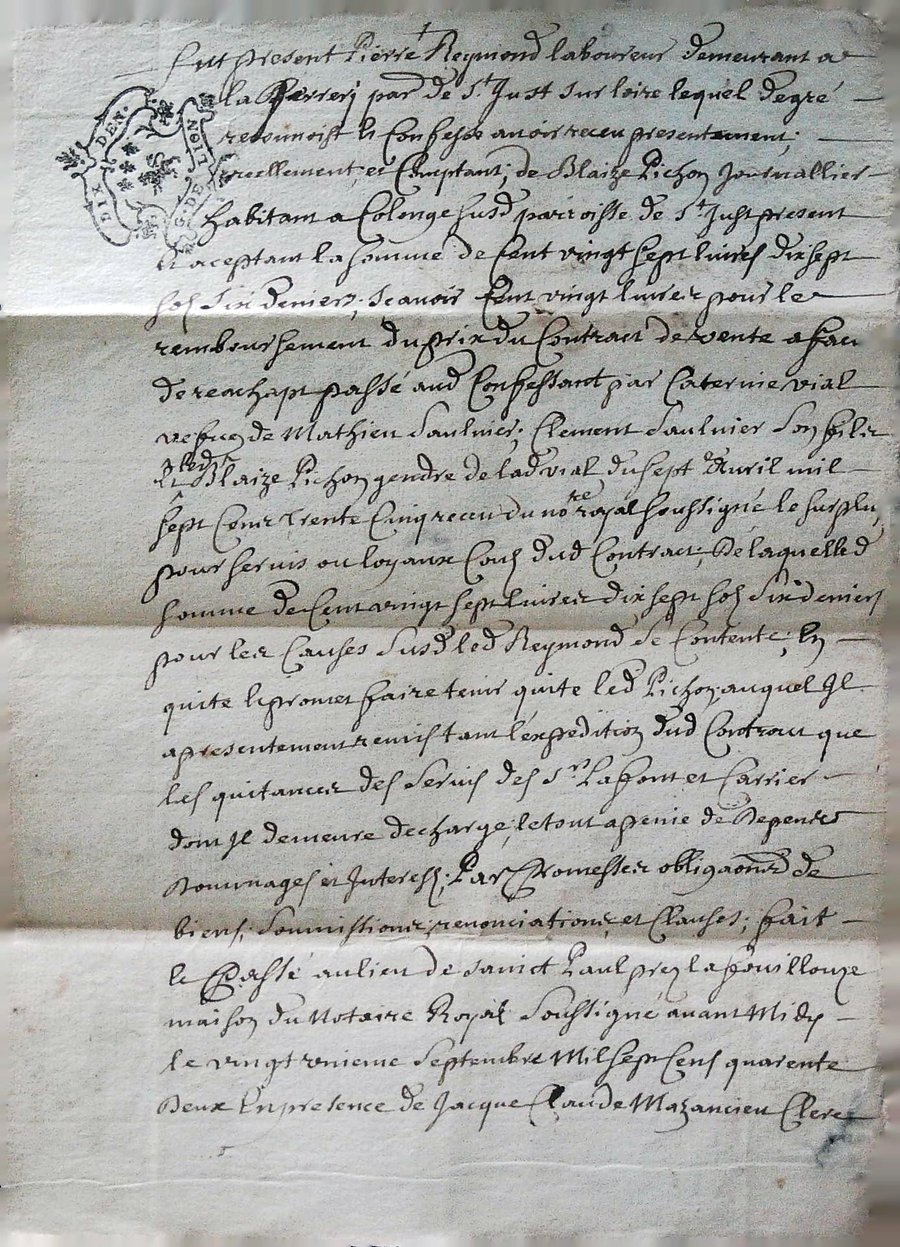 Fut present Pierre Reymond laboureur demeurant a
la par de St Just sur loire lequel de gré
reconnoist et Confesse avoir receu presentement,
reellement, et Comptant, de Blaize Pichon Journallier
habitant a Colenge susd parroisse de St Just present
et aceptant la somme de Cent vingt sept livres dix sept
sols six deniers, scavoir Cent vingt livres pour le
remboursement du prix du Contract de vente a fac
de reachapt passé aud Confessant par Caterine vial
vefve de Mathieu Saulnier, Clement Saulnier son fils
et led Blaize Pichon gendre de lad vial du sept Avril mil
sept Cent trente Cinq receu du nore royal soussigné le surplus
pour servis ou loyaux Couts dud Contract, De laquelle d
somme de Cent vingt sept livres dix sept sols six deniers
pour les Causes susd led Reymond se Contente, En
quite et promet faire tenir quite led Pichon auquel Il
a presentement remis tant l'expedition dud Contract que
les quitances des servis des Srs Laffont et Carrier
dont Il demeure decharge, le tout a peine de Depens
Dommages et Interests, Par Promesses obligaons de
biens, soumissions, renonciations, et Clauses, fait
et Passé au lieu de sainct Paul prez la fouillouze
maison du Notaire Royal soussigné avant Midy
le vingt unieme Septembre Mil sept Cens quarente
Deux En presence de Jacque Claude Mazancieu Clerc
DIX DEN.
G. DE LION